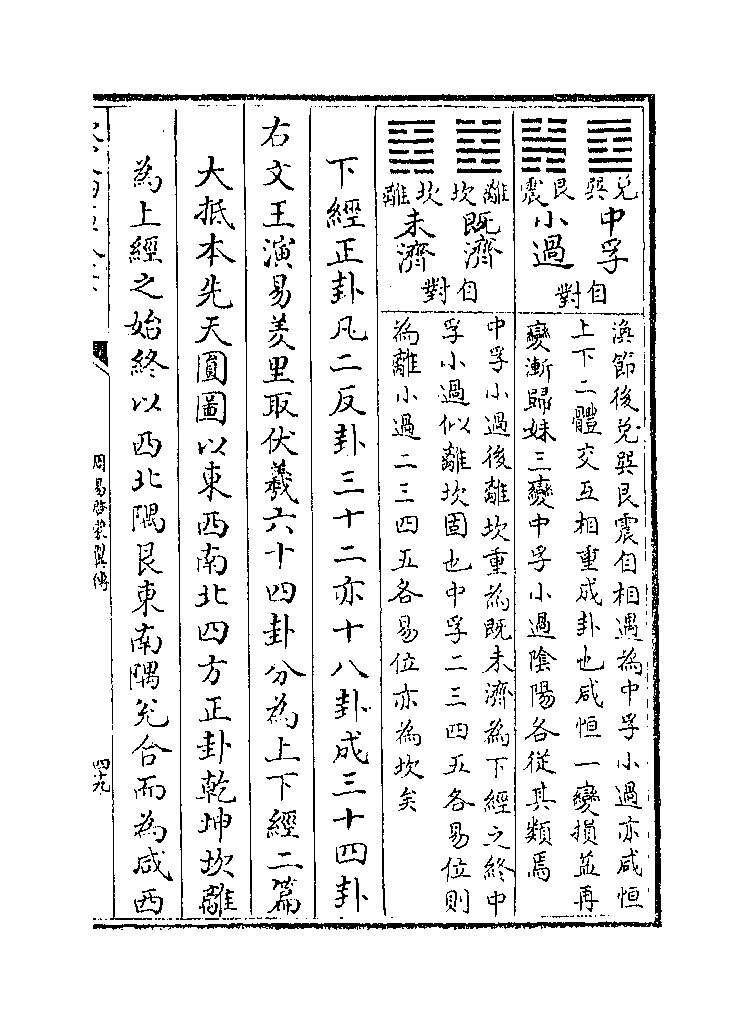 兌巽
中孚
艮震
小過
自對
渙節後兌巽艮震自相遇為中孚小過亦咸恒
上下二體交互相重成卦也咸恒一變損益再
變漸歸妹三變中孚小過陰陽各從其類焉
離坎
既濟
坎離
未濟
自對
中孚小過後離坎重為既未濟為下經之終中
孚小過似離坎固也中孚二三四五各易位則
為離小過二三四五各易位亦為坎矣
下經正卦凡二反卦三十二亦十八卦成三十四卦
右文王演易羑里取伏羲六十四卦分為上下經二篇
大抵本先天圓圖以東西南北四方正卦乾坤坎離
為上經之始終以西北隅艮東南隅兌合而為咸西
周易啓蒙翼傳
四十九